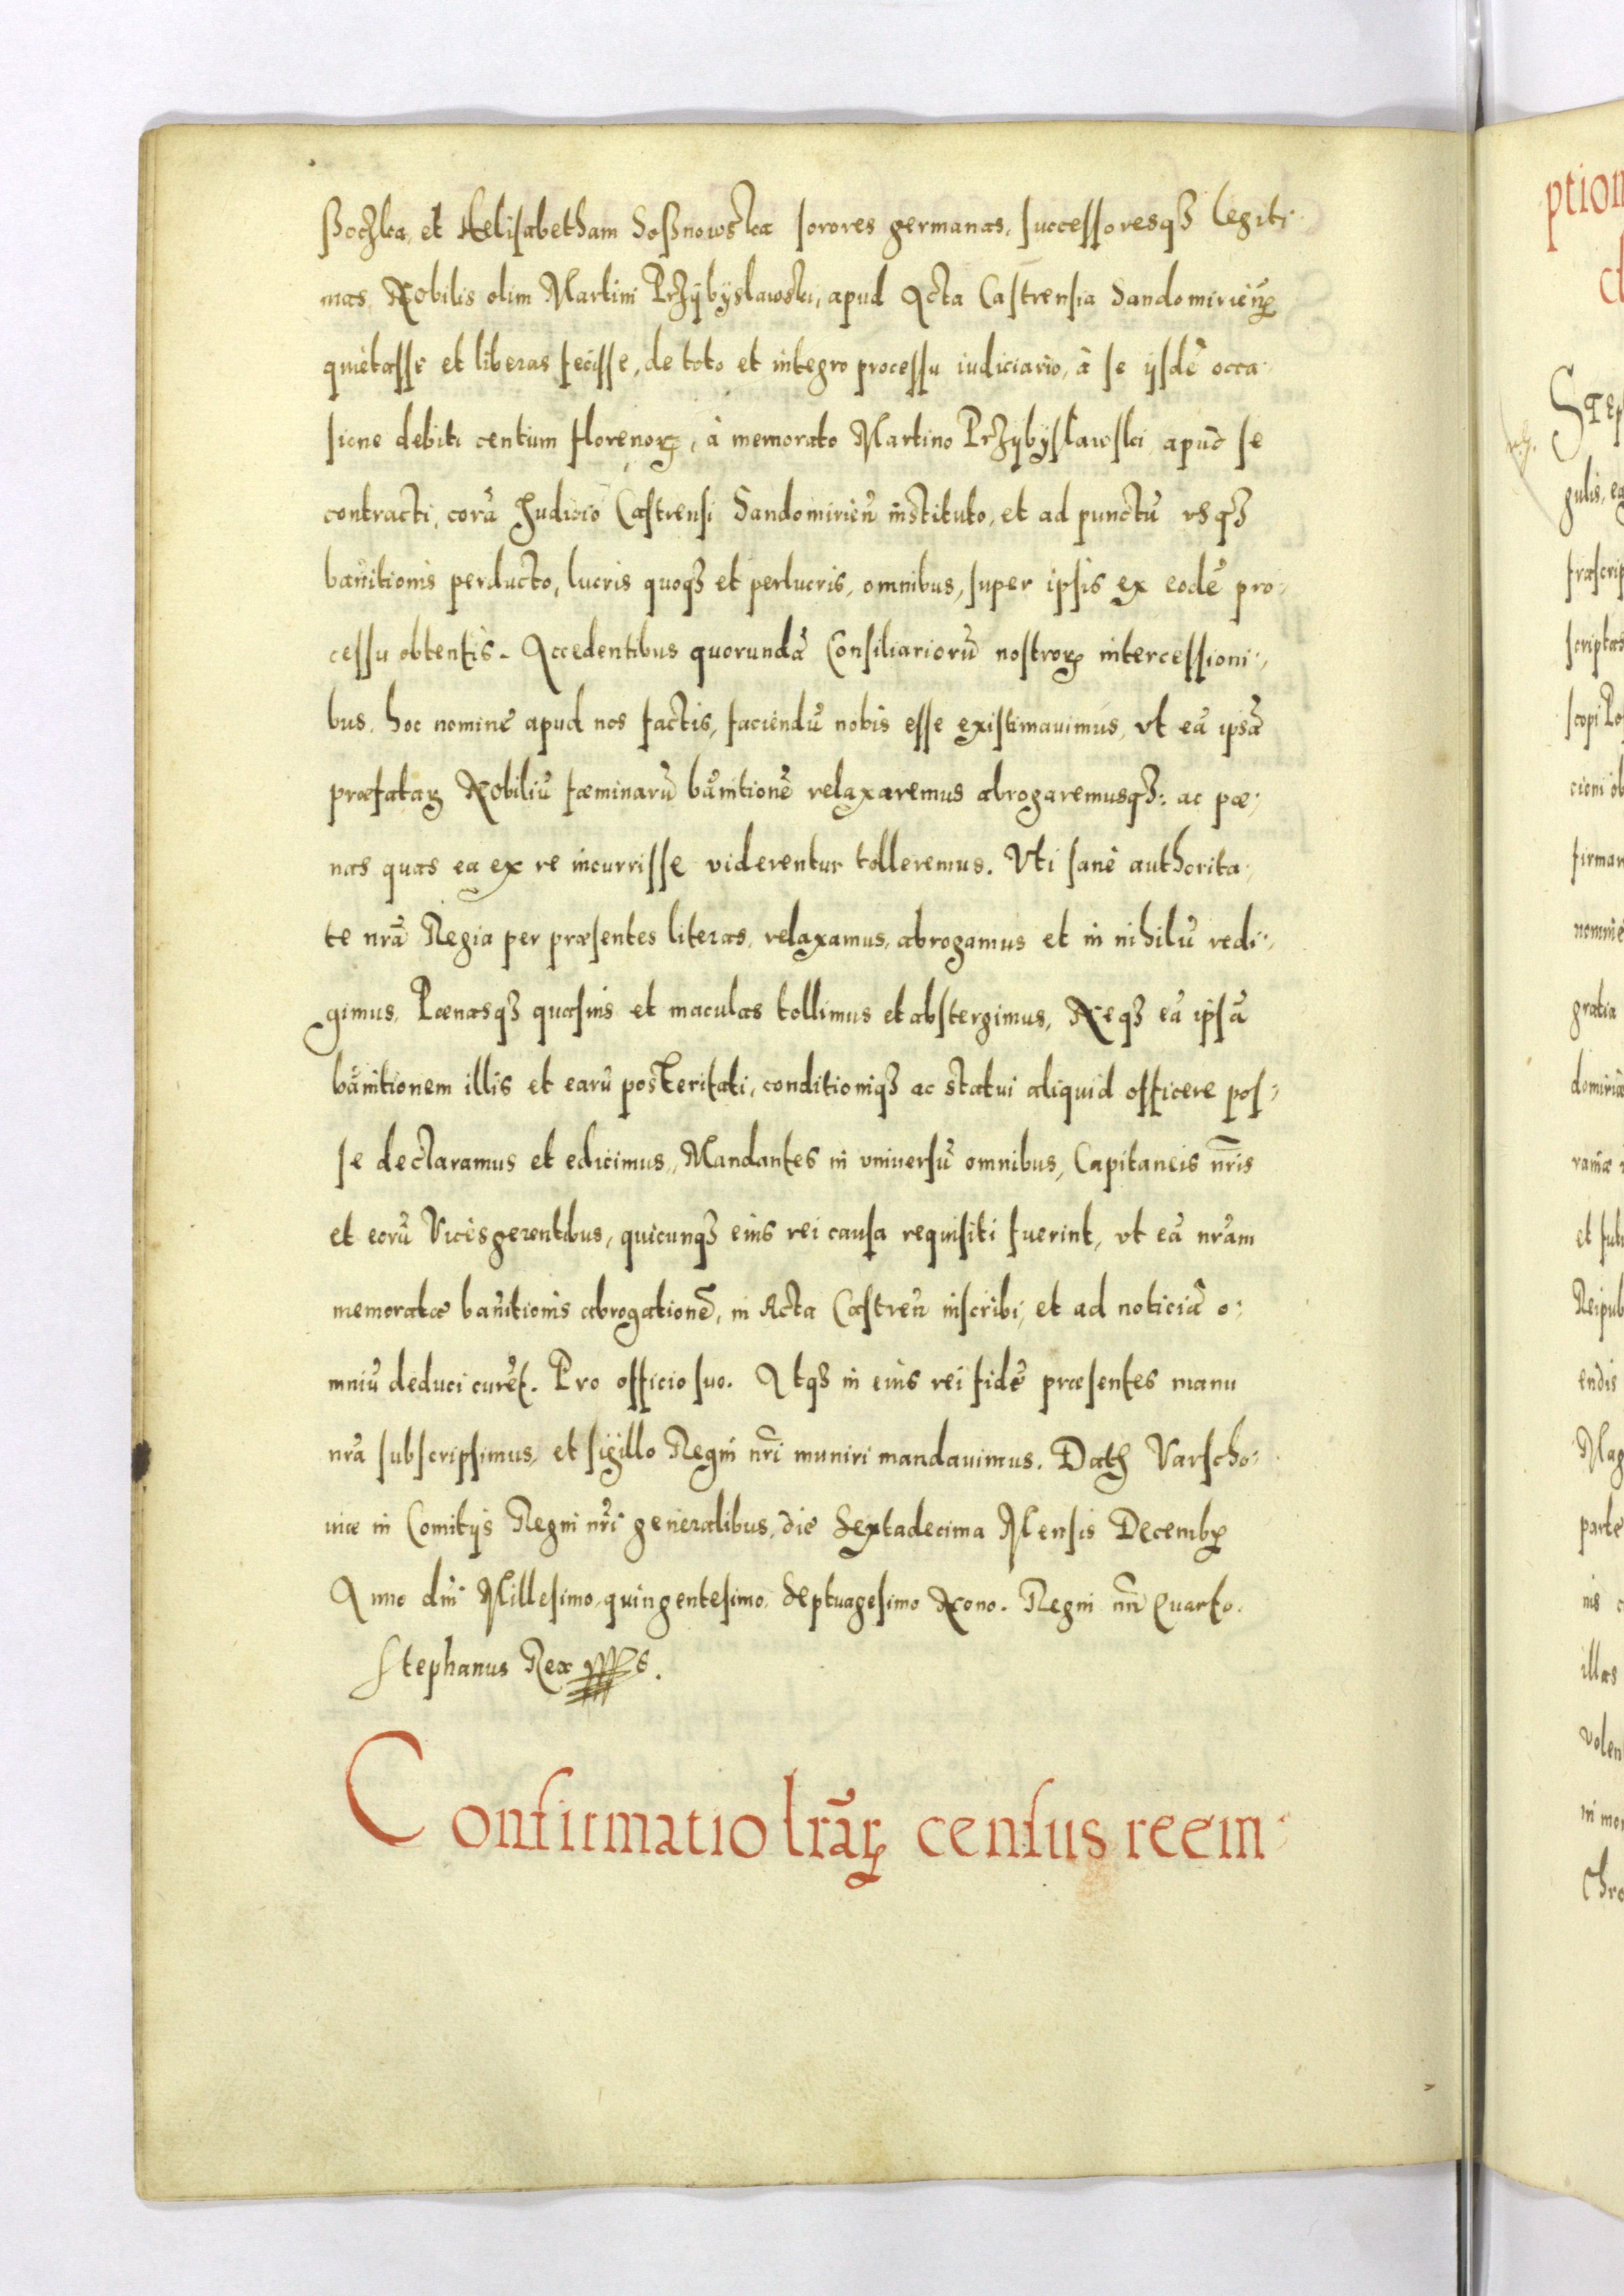 ßochka, et Aelisabetham Soßnowska sorores germanas, successoresq3 Legiti-
mas, Nobilis olim Martini Przÿbÿslawski, apud Acta Castrensia Sandomirien̄
quietasse et liberas fecisse, de toto et integro processu iudiciario, à se ijsdē occa-
sione debiti centum florenoꝝ, à memorato Martino Przÿbÿslawski apud se
contracti, corā Judicio Castrensi Sandomirien̄ instituto, et ad punctū usq3
banitionis perducto, lucris quoq3 et perlucris, omnibus, super ipsis ex eodē pro-
cessu obtentis. Accedentibus quorundā Consiliariorū nostroꝝ intercessioni-
bus, hoc nomine apud nos factis, faciendū nobis esse existimauimus, vt eā ipsā
præfataꝝ Nobiliū fæminarū bānitionē relaxaremus abrogaremusq3: ac pæ-
nas quas ea ex re incurrisse viderentur tolleremus. Vti sanè authorita-
te nrā Regia per præsentes literas, relaxamus, abrogamus et in nihilū redi-
gimus, Pænasq3 quasuis et maculas tollimus et abstergimus, Neq3 eā ipsā
bānitionem illis et earū posteritati, conditioniq3 ac statui aliquid officere pos-
se declaramus et edicimus, Mandantes in vniuersū omnibus, Capitaneis nr̄is
et eorū Vicesgerentibus, quicunq3 eius rei causa requisiti fuerint, vt eā nrām
memoratæ banitionis abrogationē, in Acta Castren̄ inscribi, et ad noticiā o-
mniū deduci curēt. Pro officio suo. Atq3 in eius rei fidē præsentes manu
nrā subscripsimus, et sigillo Regni nr̄i muniri mandauimus. Datꝫ Varscho-
uiæ in Comitÿs Regni nr̄i generalibus, die Sextadecima Mensis Decembꝝ
Anno dn̄i Millesimo, quingentesimo, Septuagesimo Nono. Regni nr̄i Quarto.
Stephanus Rex
Confirmatio lrāꝝ census reem-